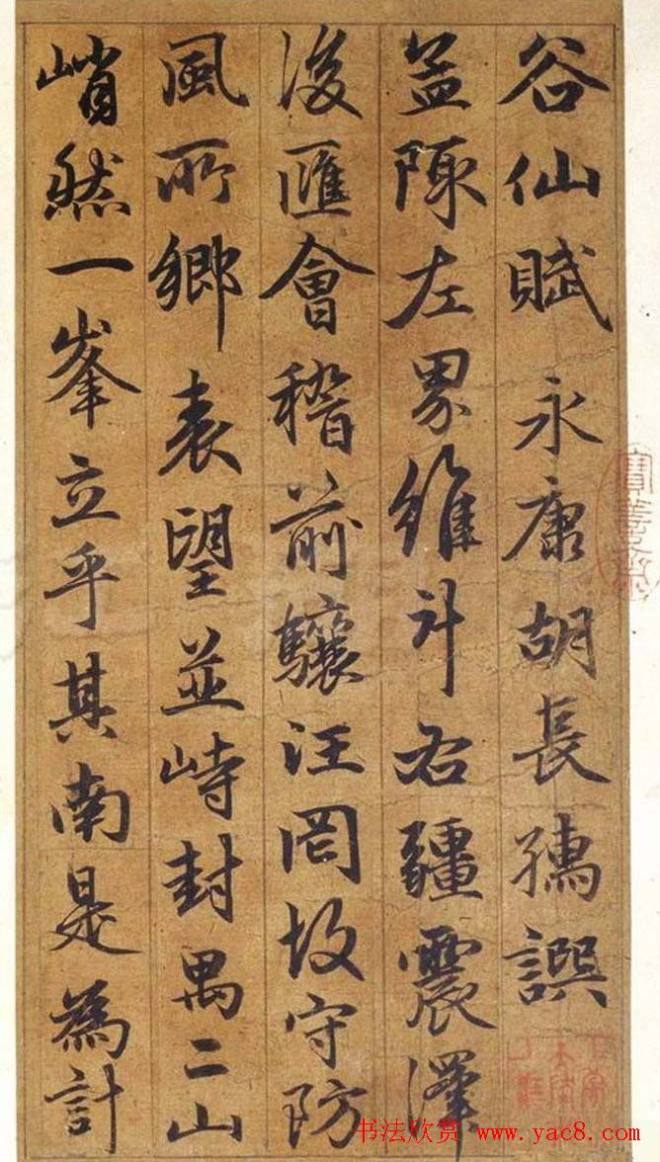 谷仙賦 永康胡長孺譔
益陳左界維斗右疆震澤
後匯會稽前驤汪罔故守防
風所鄉表望並峙封禺二山
峭然一峯立乎其南是為計
寶善齋
书法欣赏 www.yac8.com